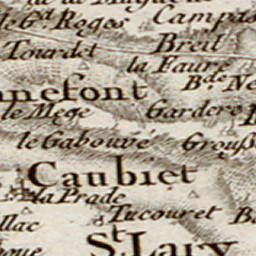 le Gd. Roges Campas
Tourdet Breil
la Faure
nnefont Bde. Ne
le Mège Gardere
le Gabouvé Grouss
Caubiet
la Prade
Tucouret B
llac
St. Lary